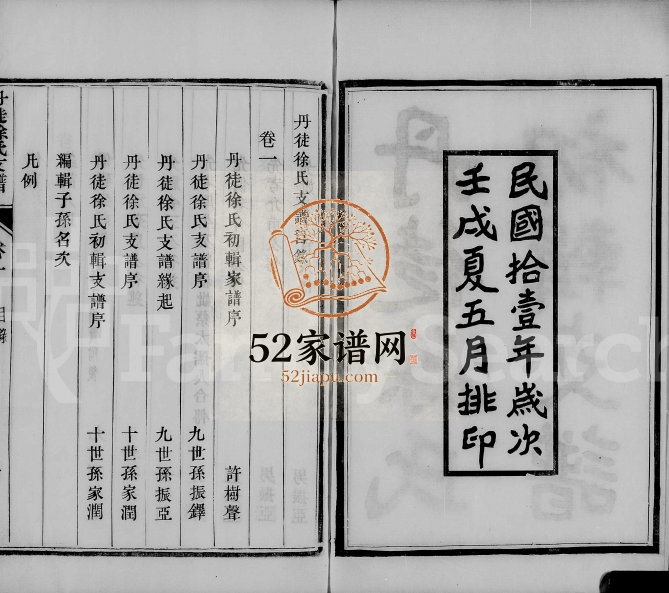 民國拾壹年歲次
壬戌夏五月排印
丹徒徐氏支譜
卷一
丹徒徐氏初輯家譜序 許樹聲
丹徒徐氏支譜序 九世孫振鐸
丹徒徐氏支譜緣起 九世孫振亞
丹徒徐氏支譜序 十世孫家潤
丹徒徐氏初輯支譜序 十世孫家潤
編輯子孫名次
凡例
丹徒徐氏支譜
52家谱网
52jiapu.com